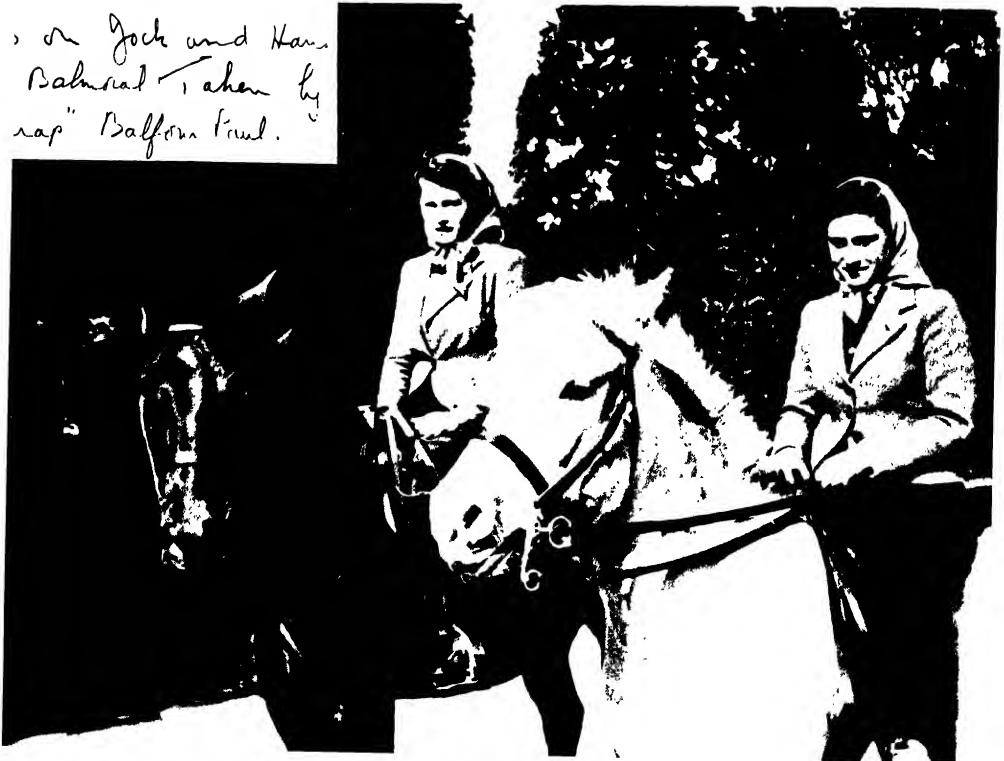 on Jock and Han
Balmoral Taken by
nap" Balfour